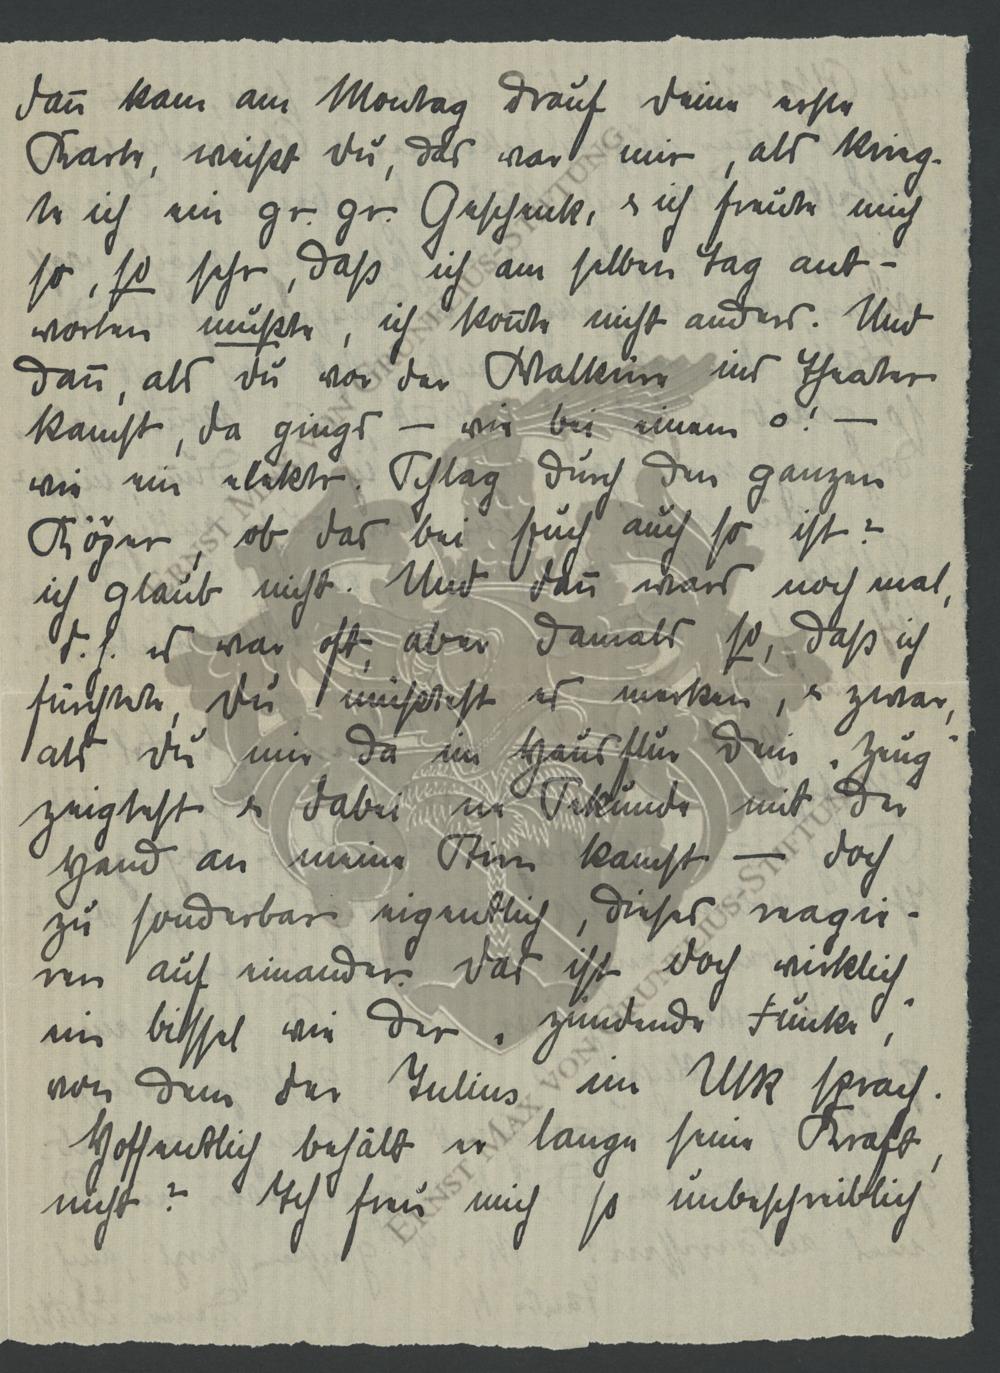 dan̄ kam am Montag drauf deine erste
Karte, weißt du, das war mir, als krieg-
te ich ein gr. gr. Geschenk, & ich freute mich
so, so sehr, daß ich am selben Tag ant-
worten mußte, ich kon̄te nicht anders. Und
dan̄, als du vor der Walküre ins Theater
kamst, da gings — wie bei einem o! —
wie ein elektr. Schlag durch den ganzen
Körper, ob das bei Euch auch so ist?
ich glaub nicht. Und dan̄ wars noch mal,
d. h. es war oft, aber damals so, daß ich
fürchtete, du müßtest es merken, & zwar,
als du mir da im Hausflur dein „Zeug“
zeigtest & dabei ne Sekunde mit der
Hand an meine kamst — doch
zu sonderbar eigentlich, dieses reagie-
ren auf einander. Das ist doch wirklich
ein bissel wie der „zündende Funke“,
von dem der Julius im Ulk sprach.
Hoffentlich behält er lange seine Kraft,
nicht? Ich freu mich so unbeschreiblich
ERNST MAX VON GRUNELIUS-STIFTUNG
ERNST MAX VON GRUNELIUS-STIFTUNG